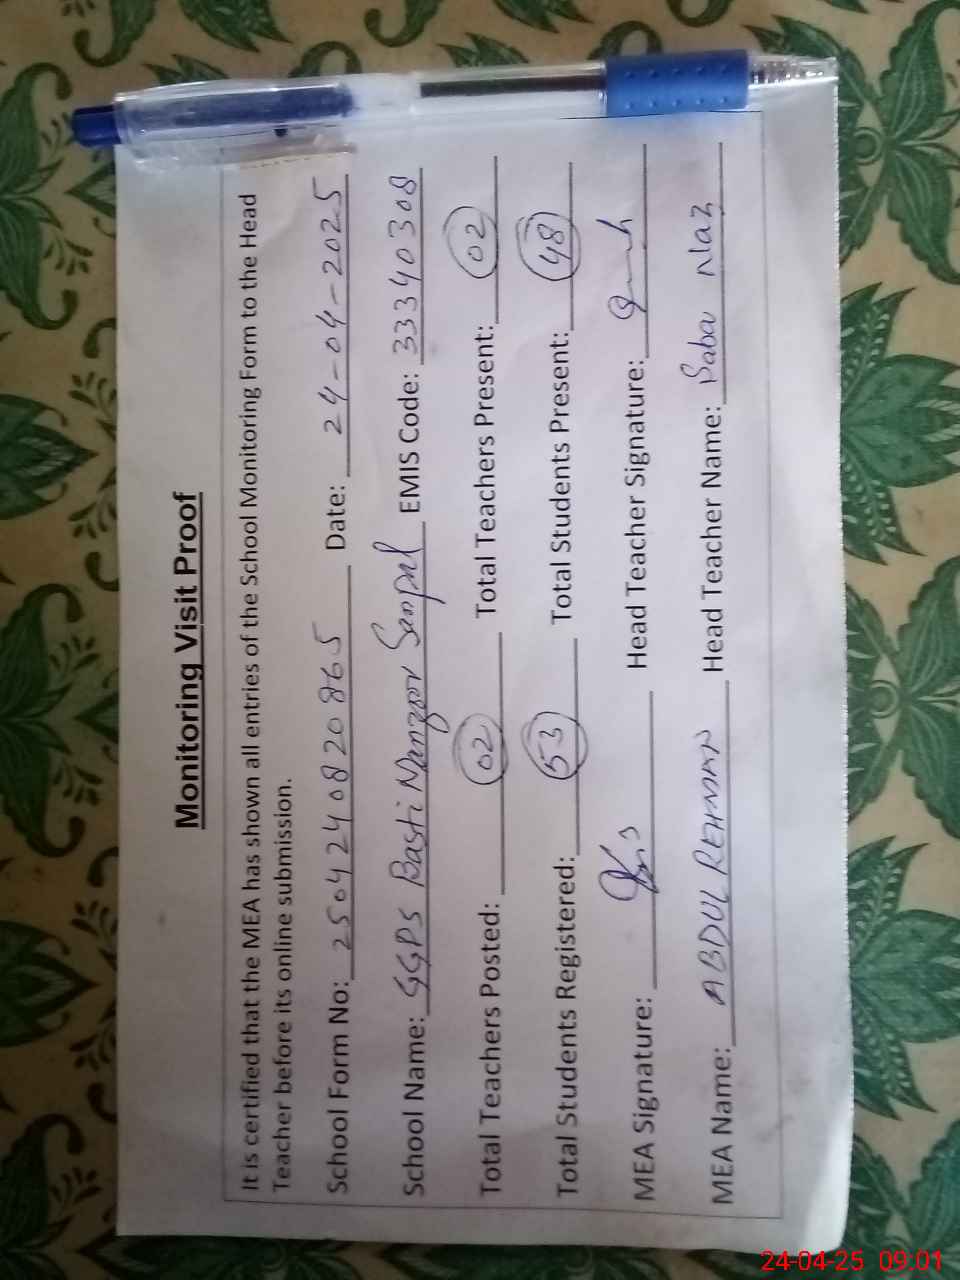 Monitoring Visit Proof
It is certified that the MEA has shown all entries of the School Monitoring Form to the Head
Teacher before its online submission.
School Form No: 2504240820865 Date: 24-04-2025
School Name: GGPS Basti Manzoor EMIS Code: 33340308
Total Teachers Posted: 02 Total Teachers Present: 02
Total Students Registered: 53 Total Students Present: 48
MEA Signature: Head Teacher Signature:
MEA Name: ABDUL REHMAN Head Teacher Name: Saba Naz
24-04-25 09.01